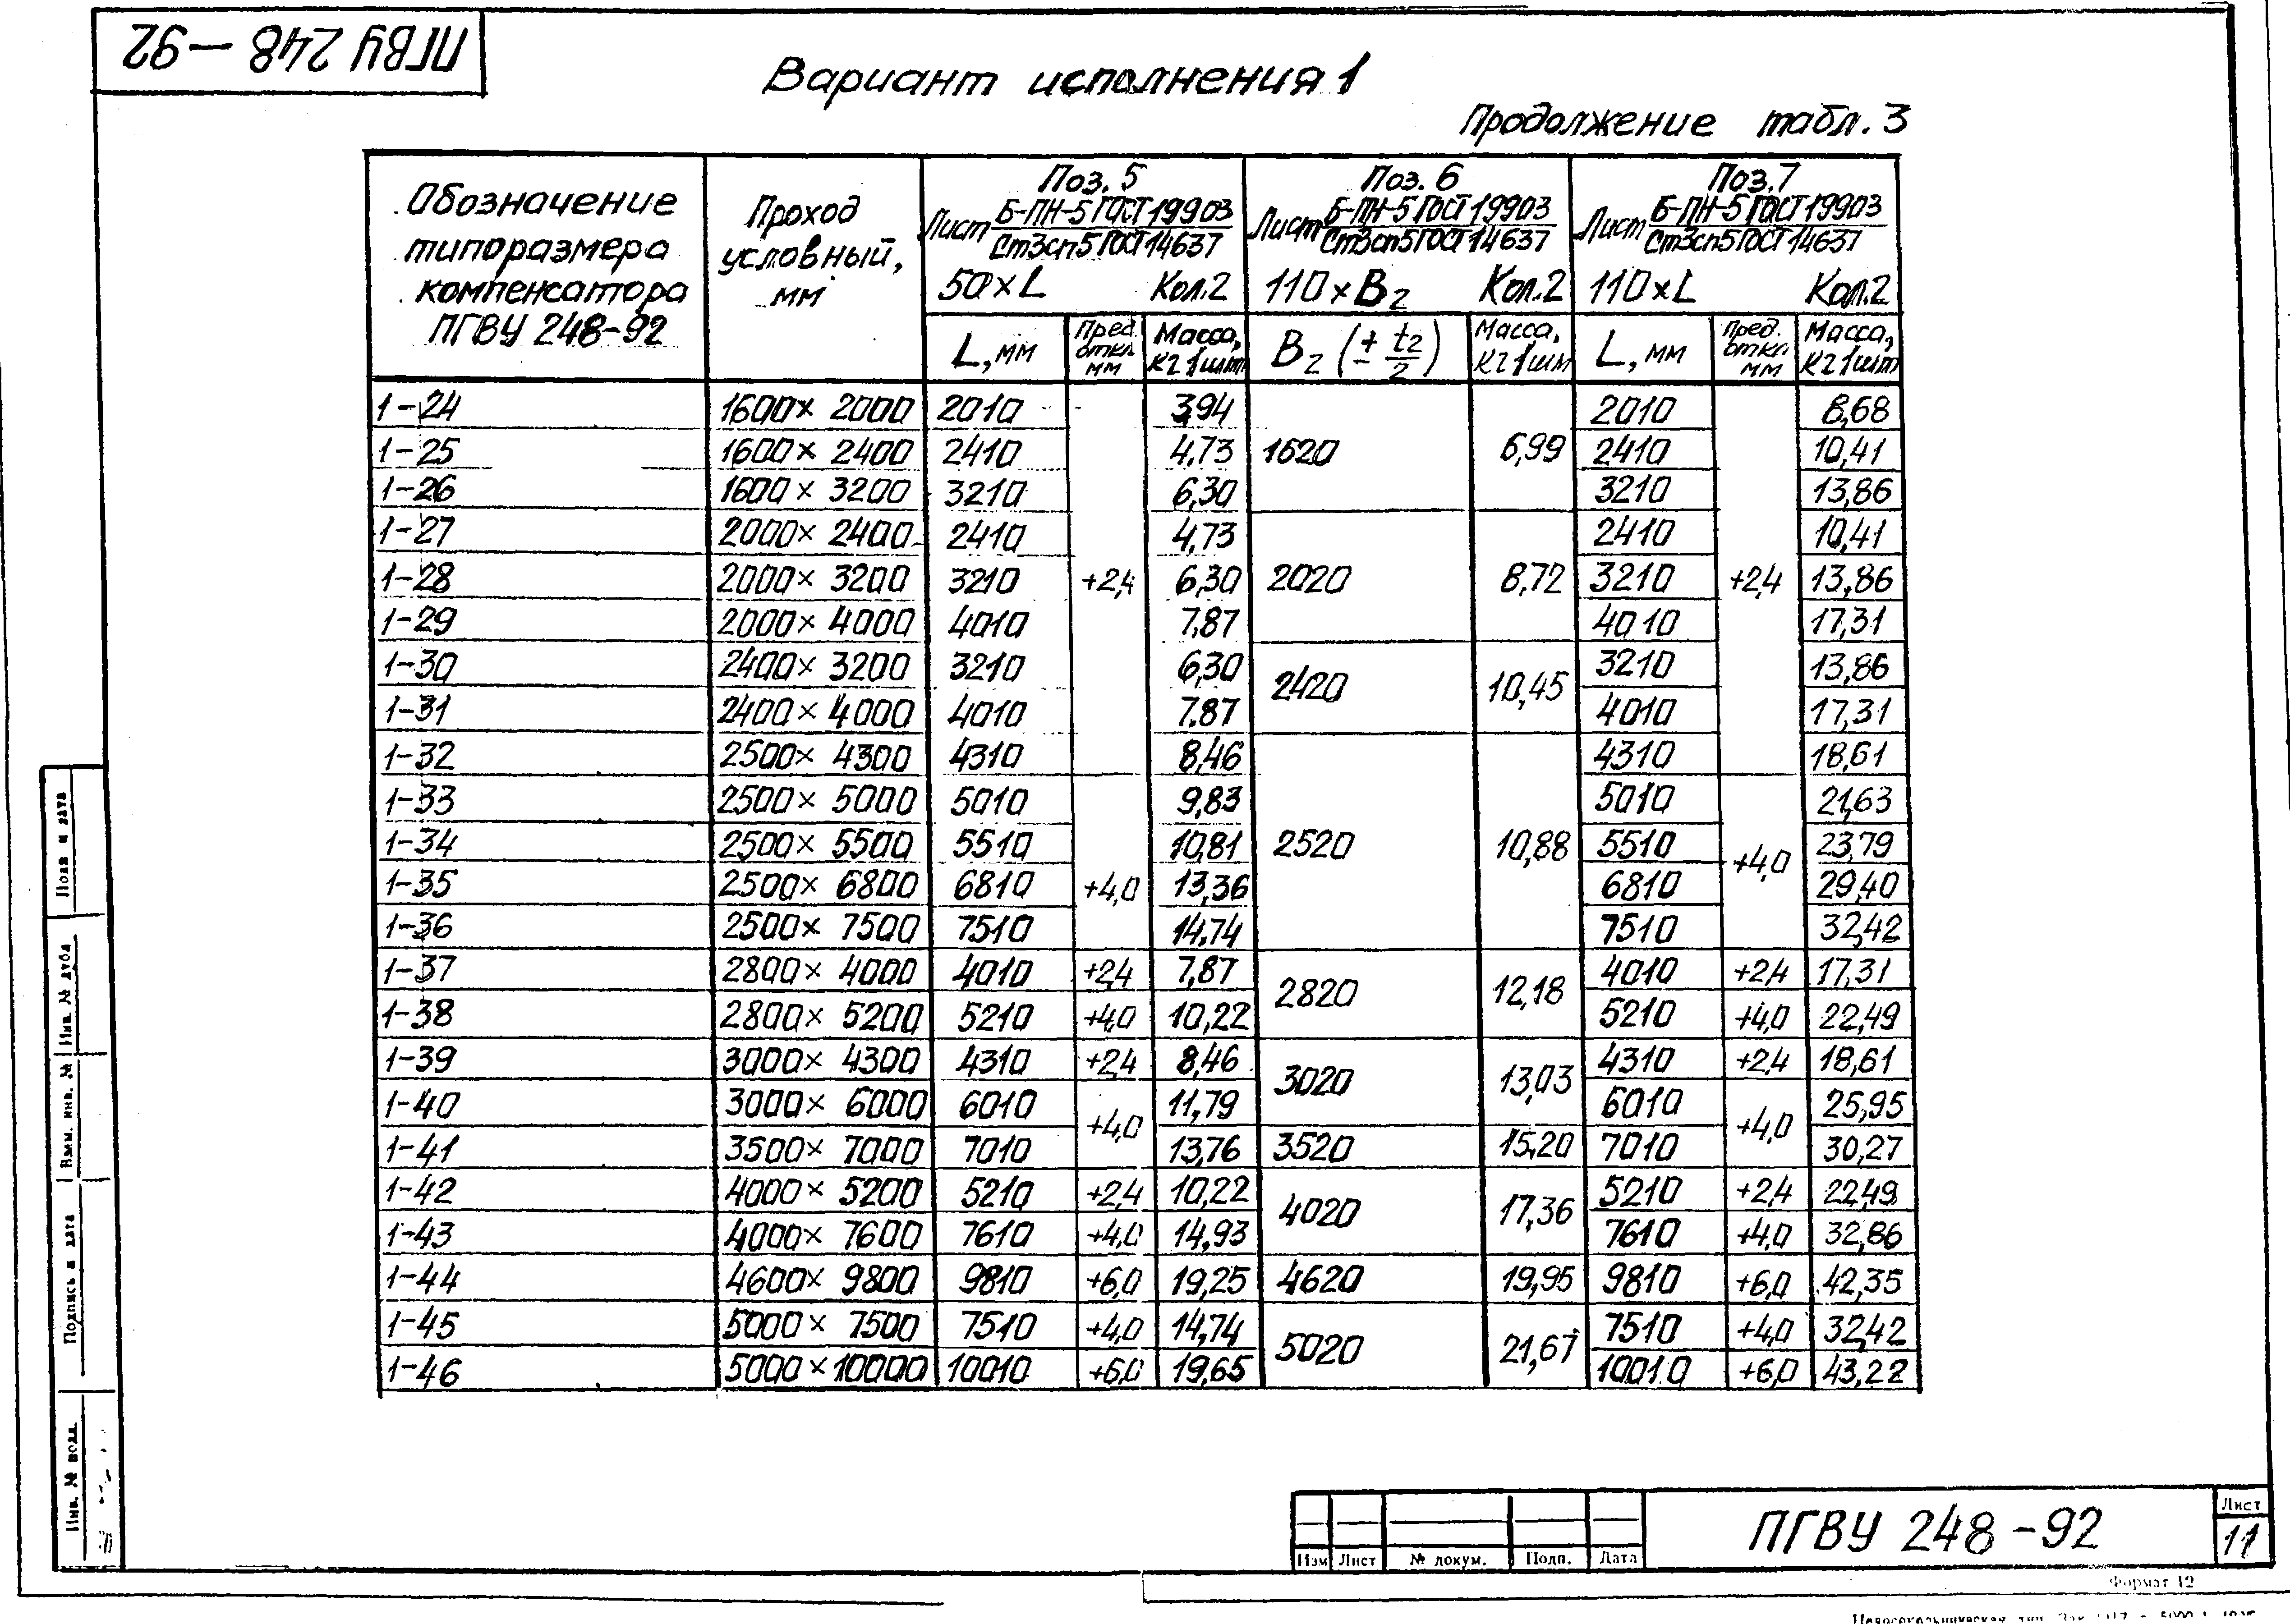 ПГВУ 248 – 92
Вариант исполнения 1
Продолжение табл. 3
Обозначение типоразмера компенсатора ПГВУ 248-92 | Проход условный, мм | Поз. 5 | Поз. 6 | Поз. 7
Лист Б-ПН-5 ГОСТ 19903 / Ст3сп5 ГОСТ 14637 | Лист Б-ПН-5 ГОСТ 19903 / Ст3сп5 ГОСТ 14637 | Лист Б-ПН-5 ГОСТ 19903 / Ст3сп5 ГОСТ 14637
50×L Кол.2 | 110×B₂ Кол.2 | 110×L Кол.2
L, мм | Пред. откл. мм | Масса, кг 1шт | B₂ (± t₂/2) | Масса, кг 1шт | L, мм | Пред. откл. мм | Масса, кг 1шт
1-24 1600×2000 2010 3,94 2010 8,68
1-25 1600×2400 2410 4,73 1620 6,99 2410 10,41
1-26 1600×3200 3210 6,30 3210 13,86
1-27 2000×2400 2410 4,73 2410 10,41
1-28 2000×3200 3210 +2,4 6,30 2020 8,72 3210 +2,4 13,86
1-29 2000×4000 4010 7,87 4010 17,31
1-30 2400×3200 3210 6,30 2420 10,45 3210 13,86
1-31 2400×4000 4010 7,87 4010 17,31
1-32 2500×4300 4310 8,46 4310 18,61
1-33 2500×5000 5010 9,83 5010 21,63
1-34 2500×5500 5510 10,81 2520 10,88 5510 +4,0 23,79
1-35 2500×6800 6810 +4,0 13,36 6810 29,40
1-36 2500×7500 7510 14,74 7510 32,42
1-37 2800×4000 4010 +2,4 7,87 2820 12,18 4010 +2,4 17,31
1-38 2800×5200 5210 +4,0 10,22 5210 +4,0 22,49
1-39 3000×4300 4310 +2,4 8,46 3020 13,03 4310 +2,4 18,61
1-40 3000×6000 6010 +4,0 11,79 6010 +4,0 25,95
1-41 3500×7000 7010 13,76 3520 15,20 7010 30,27
1-42 4000×5200 5210 +2,4 10,22 4020 17,36 5210 +2,4 22,49
1-43 4000×7600 7610 +4,0 14,93 7610 +4,0 32,86
1-44 4600×9800 9810 +6,0 19,25 4620 19,95 9810 +6,0 42,35
1-45 5000×7500 7510 +4,0 14,74 5020 21,67 7510 +4,0 32,42
1-46 5000×10000 10010 +6,0 19,65 10010 +6,0 43,22
Подп и дата
Инв. № дубл
Взам. инв. №
Подпись и дата
Инв. № подл.
Изм Лист № докум. Подп. Дата
ПГВУ 248 – 92
Лист
11
Формат 12